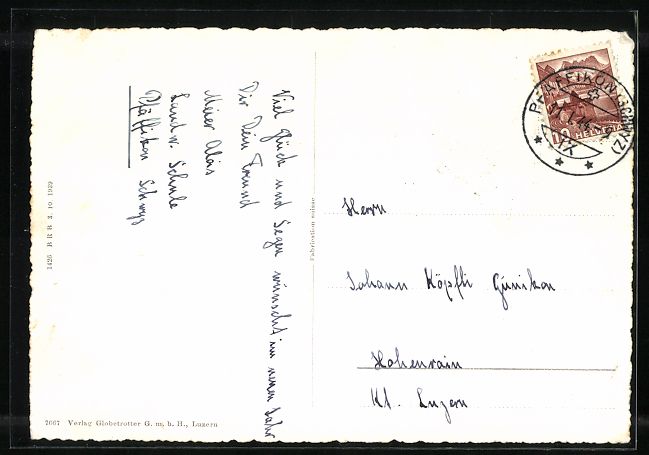 Viel Glück und Segen wünscht im neuen Jahr
Dir Dein Freund
Meier Alois
Landw. Schule
Pfäffikon Schwyz
Fabrication suisse
1426 B R B 3. 10 1939
7667 Verlag Globetrotter G. m. b. H., Luzern
PFÄFFIKON (SCHWYZ)
10 HELVETIA
Herrn
Johann Köpfli Günikon
Hohenrain
Kt. Luzern